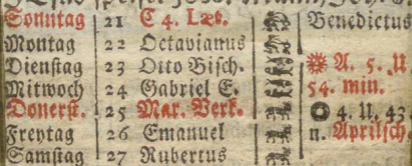 Sonntag 21 C 4. Læt. Benedictus
Montag 22 Octavianus
Dienstag 23 Otto Bisch. A. 5. U.
Mitwoch 24 Gabriel E. 54. min.
Donerst. 25 Mar. Verk. 4. U. 43.
Freytag 26 Emanuel n. Aprilsch.
Samstag 27 Rubertus